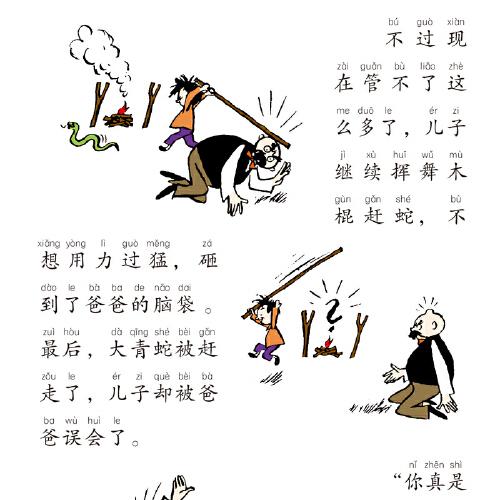 bú guò xiàn
不过现
zài guǎn bù liǎo zhè
在管不了这
me duō le ér zi
么多了，儿子
jì xù huī wǔ mù
继续挥舞木
gùn gǎn shé bù
棍赶蛇，不
xiǎng yòng lì guò měng zá
想用力过猛，砸
dào le bà ba de nǎo dai
到了爸爸的脑袋。
zuì hòu dà qīng shé bèi gǎn
最后，大青蛇被赶
zǒu le ér zi què bèi bà
走了，儿子却被爸
ba wù huì le
爸误会了。
nǐ zhēn shì
“你真是